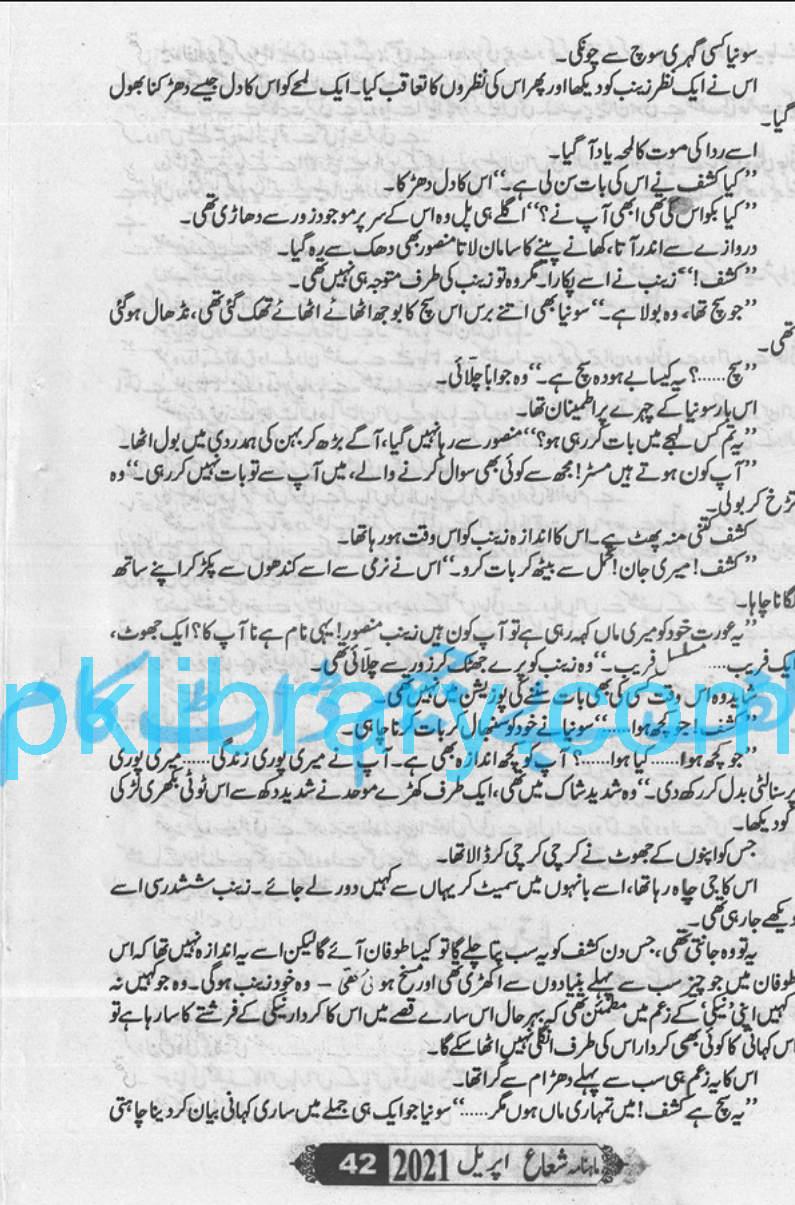 سونیا کسی گہری سوچ سے چونکی۔
اس نے ایک نظر زینب کو دیکھا اور پھر اس کی نظروں کا تعاقب کیا۔ ایک لمحے کو اس کا دل جیسے دھڑکنا بھول
گیا۔
اسے ردا کی موت کا لمحہ یاد آ گیا۔
’’کیا کشف نے اس کی بات سن لی ہے۔‘‘ اس کا دل دھڑکا۔
’’کیا بکواس کی تھی ابھی آپ نے؟‘‘ اگلے ہی پل وہ اس کے سر پر موجود زور سے دھاڑی تھی۔
دروازے سے اندر آتا، کھانے پینے کا سامان لاتا منصور بھی دھک سے رہ گیا۔
’’کشف!‘‘ زینب نے اسے پکارا۔ مگر وہ تو زینب کی طرف متوجہ ہی نہیں تھی۔
’’جو سچ تھا، وہ بولا ہے۔‘‘ سونیا بھی اتنے برس اس سچ کا بوجھ اٹھائے اٹھائے تھک گئی تھی، نڈھال ہو گئی
تھی۔
’’سچ......؟ یہ کیسا بے ہودہ سچ ہے۔‘‘ وہ جواباً چلّائی۔
اس بار سونیا کے چہرے پر اطمینان تھا۔
’’یہ تم کس لہجے میں بات کر رہی ہو؟‘‘ منصور سے رہا نہیں گیا، آگے بڑھ کر بہن کی ہمدردی میں بول اٹھا۔
’’آپ کون ہوتے ہیں مسٹر! مجھ سے کوئی بھی سوال کرنے والے، میں آپ سے تو بات نہیں کر رہی۔‘‘ وہ
تڑخ کر بولی۔
کشف کتنی منہ پھٹ ہے۔ اس کا اندازہ زینب کو اس وقت ہو رہا تھا۔
’’کشف! میری جان! تحمل سے بیٹھ کر بات کرو۔‘‘ اس نے نرمی سے اسے کندھوں سے پکڑ کر اپنے ساتھ
لگانا چاہا۔
’’یہ عورت خود کو میری ماں کہہ رہی ہے تو آپ کون ہیں زینب منصور! یہی نام ہے نا آپ کا؟ ایک جھوٹ،
ایک فریب..... مسلسل فریب۔‘‘ وہ زینب کو پرے جھٹک کر زور سے چلّائی تھی۔
شاید وہ اس وقت کسی کی بھی بات سننے کی پوزیشن میں نہیں تھی۔
’’کشف! جو کچھ ہوا......‘‘ سونیا نے خود کو سنبھال کر بات کرنا چاہی۔
’’جو کچھ ہوا...... کیا ہوا......؟ آپ کو کچھ اندازہ بھی ہے۔ آپ نے میری پوری زندگی...... میری پوری
پرسنالٹی بدل کر رکھ دی۔‘‘ وہ شدید شاک میں تھی، ایک طرف کھڑے موحد نے شدید دکھ سے اس ٹوٹی بکھری لڑکی
کو دیکھا۔
جس کو اپنوں کے جھوٹ نے کرچی کرچی کر ڈالا تھا۔
اس کا جی چاہ رہا تھا، اسے بانہوں میں سمیٹ کر یہاں سے کہیں دور لے جائے۔ زینب ششدر سی اسے
دیکھے جا رہی تھی۔
یہ تو وہ جانتی تھی، جس دن کشف کو یہ سب پتا چلے گا تو کیسا طوفان آئے گا لیکن اسے یہ اندازہ نہیں تھا کہ اس
طوفان میں جو چیز سب سے پہلے بنیادوں سے اکھڑی تھی اور مسخ ہونی تھی – وہ خود زینب ہوگی۔ وہ جو کہیں نہ
کہیں اپنی ’نیکی‘ کے زعم میں مطمئن تھی کہ بہرحال اس سارے قصے میں اس کا کردار نیکی کے فرشتے کا سا رہا ہے تو
اس کہانی کا کوئی بھی کردار اس کی طرف انگلی نہیں اٹھا سکے گا۔
اس کا یہ زعم ہی سب سے پہلے دھڑام سے گرا تھا۔
’’یہ سچ ہے کشف! میں تمہاری ماں ہوں مگر......‘‘ سونیا جو ایک ہی جملے میں ساری کہانی بیان کر دینا چاہتی
ماہنامہ شعاع اپریل 2021 42
pklibrary.com